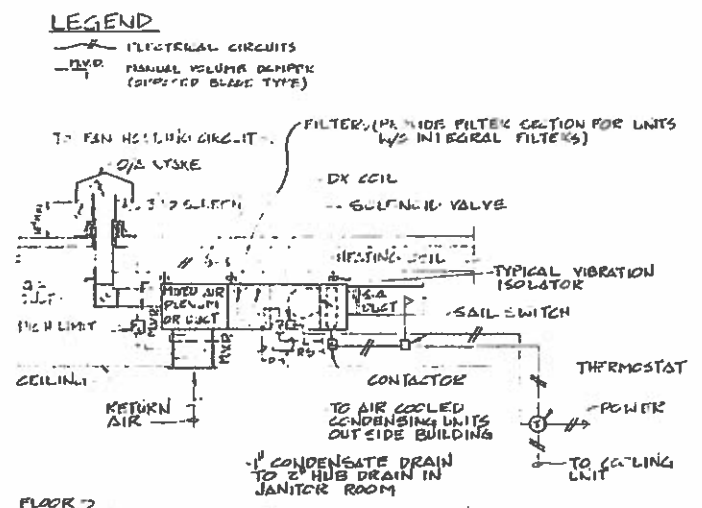 LEGEND
ELECTRICAL CIRCUITS
M.V.D. MANUAL VOLUME DAMPER
(OPPOSED BLADE TYPE)
FILTERS (PROVIDE FILTER SECTION FOR UNITS
W/O INTEGRAL FILTERS)
TO FAN HOLDING CIRCUIT
O/A INTAKE
DX COIL
SCREEN
SOLENOID VALVE
HEATING COIL
TYPICAL VIBRATION
ISOLATOR
MIXED AIR
PLENUM
OR DUCT
S.A.
DUCT
DUCT
HIGH LIMIT
M.V.D.
SAIL SWITCH
M.V.D.
CEILING
CONTACTOR
THERMOSTAT
RETURN
AIR
TO AIR COOLED
CONDENSING UNITS
OUTSIDE BUILDING
POWER
T
1" CONDENSATE DRAIN
TO 2" HUB DRAIN IN
JANITOR ROOM
TO COOLING
UNIT
FLOOR